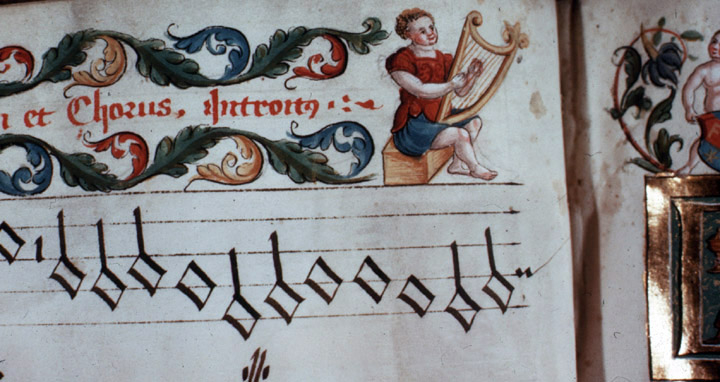 et Chorus, Introitꝰ